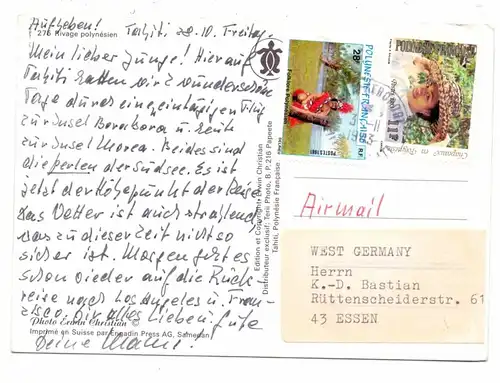 Aufheben! Tahiti 28.10. Freitag.
276 Rivage polynésien
Mein lieber Junge! Hier auf
Tahiti hatten wir 2 wunderschöne
Tage durch einen eintägigen Flug
zur Insel Bora bora u. heute
zur Insel Morea. Beides sind
die Perlen der Südsee. Es ist
jetzt der Höhepunkt der Reise
das Wetter ist auch strahlend
was zu dieser Zeit nicht so
sicher ist. Morgen geht es
schon wieder auf die Rück-
reise nach Los Angeles u. Fran-
zisco. Dir alles Liebe u. Gute
Deine Mami!
Photo Erwin Christian ©
Imprimé en Suisse par Engadin Press AG, Samedan
Edition et Copyright: Erwin Christian
Distributeur exclusif: Tera Photo, B. P. 216 Papeete
Tahiti, Polynésie Française
POLYNESIE FRANÇAISE
28F
POSTES 1983
RF
POLYNESIE FRANÇAISE
11F
Chapeaux en Polynésie
Airmail
WEST GERMANY
Herrn
K.-D. Bastian
Rüttenscheiderstr. 61
43 ESSEN